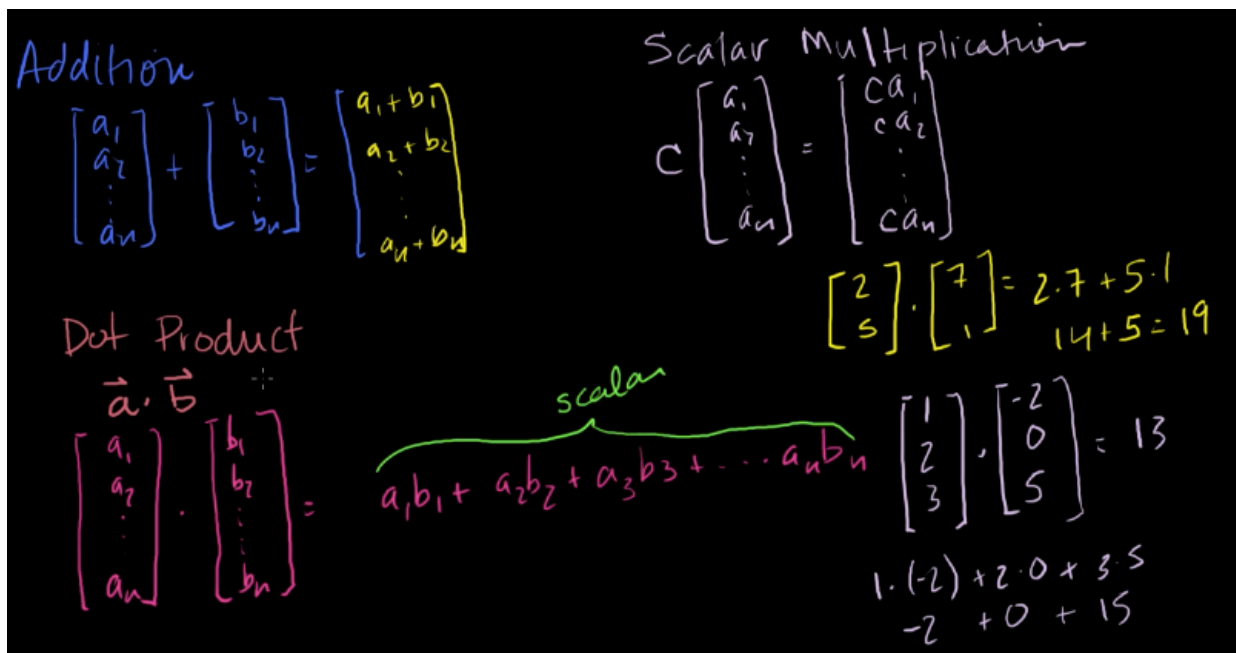 Addition
[a₁ a₂ ⋮ aₙ] + [b₁ b₂ ⋮ bₙ] = [a₁+b₁ a₂+b₂ ⋮ aₙ+bₙ]
Scalar Multiplication
C [a₁ a₂ ⋮ aₙ] = [ca₁ ca₂ ⋮ caₙ]
[2 5] · [7 1] = 2·7 + 5·1
14+5=19
Dot Product
a⃗ · b⃗
[a₁ a₂ ⋮ aₙ] · [b₁ b₂ ⋮ bₙ] = a₁b₁ + a₂b₂ + a₃b3 + ... aₙbₙ
scalar
[1 2 3] · [-2 0 5] = 13
1·(-2) + 2·0 + 3·5
-2 + 0 + 15